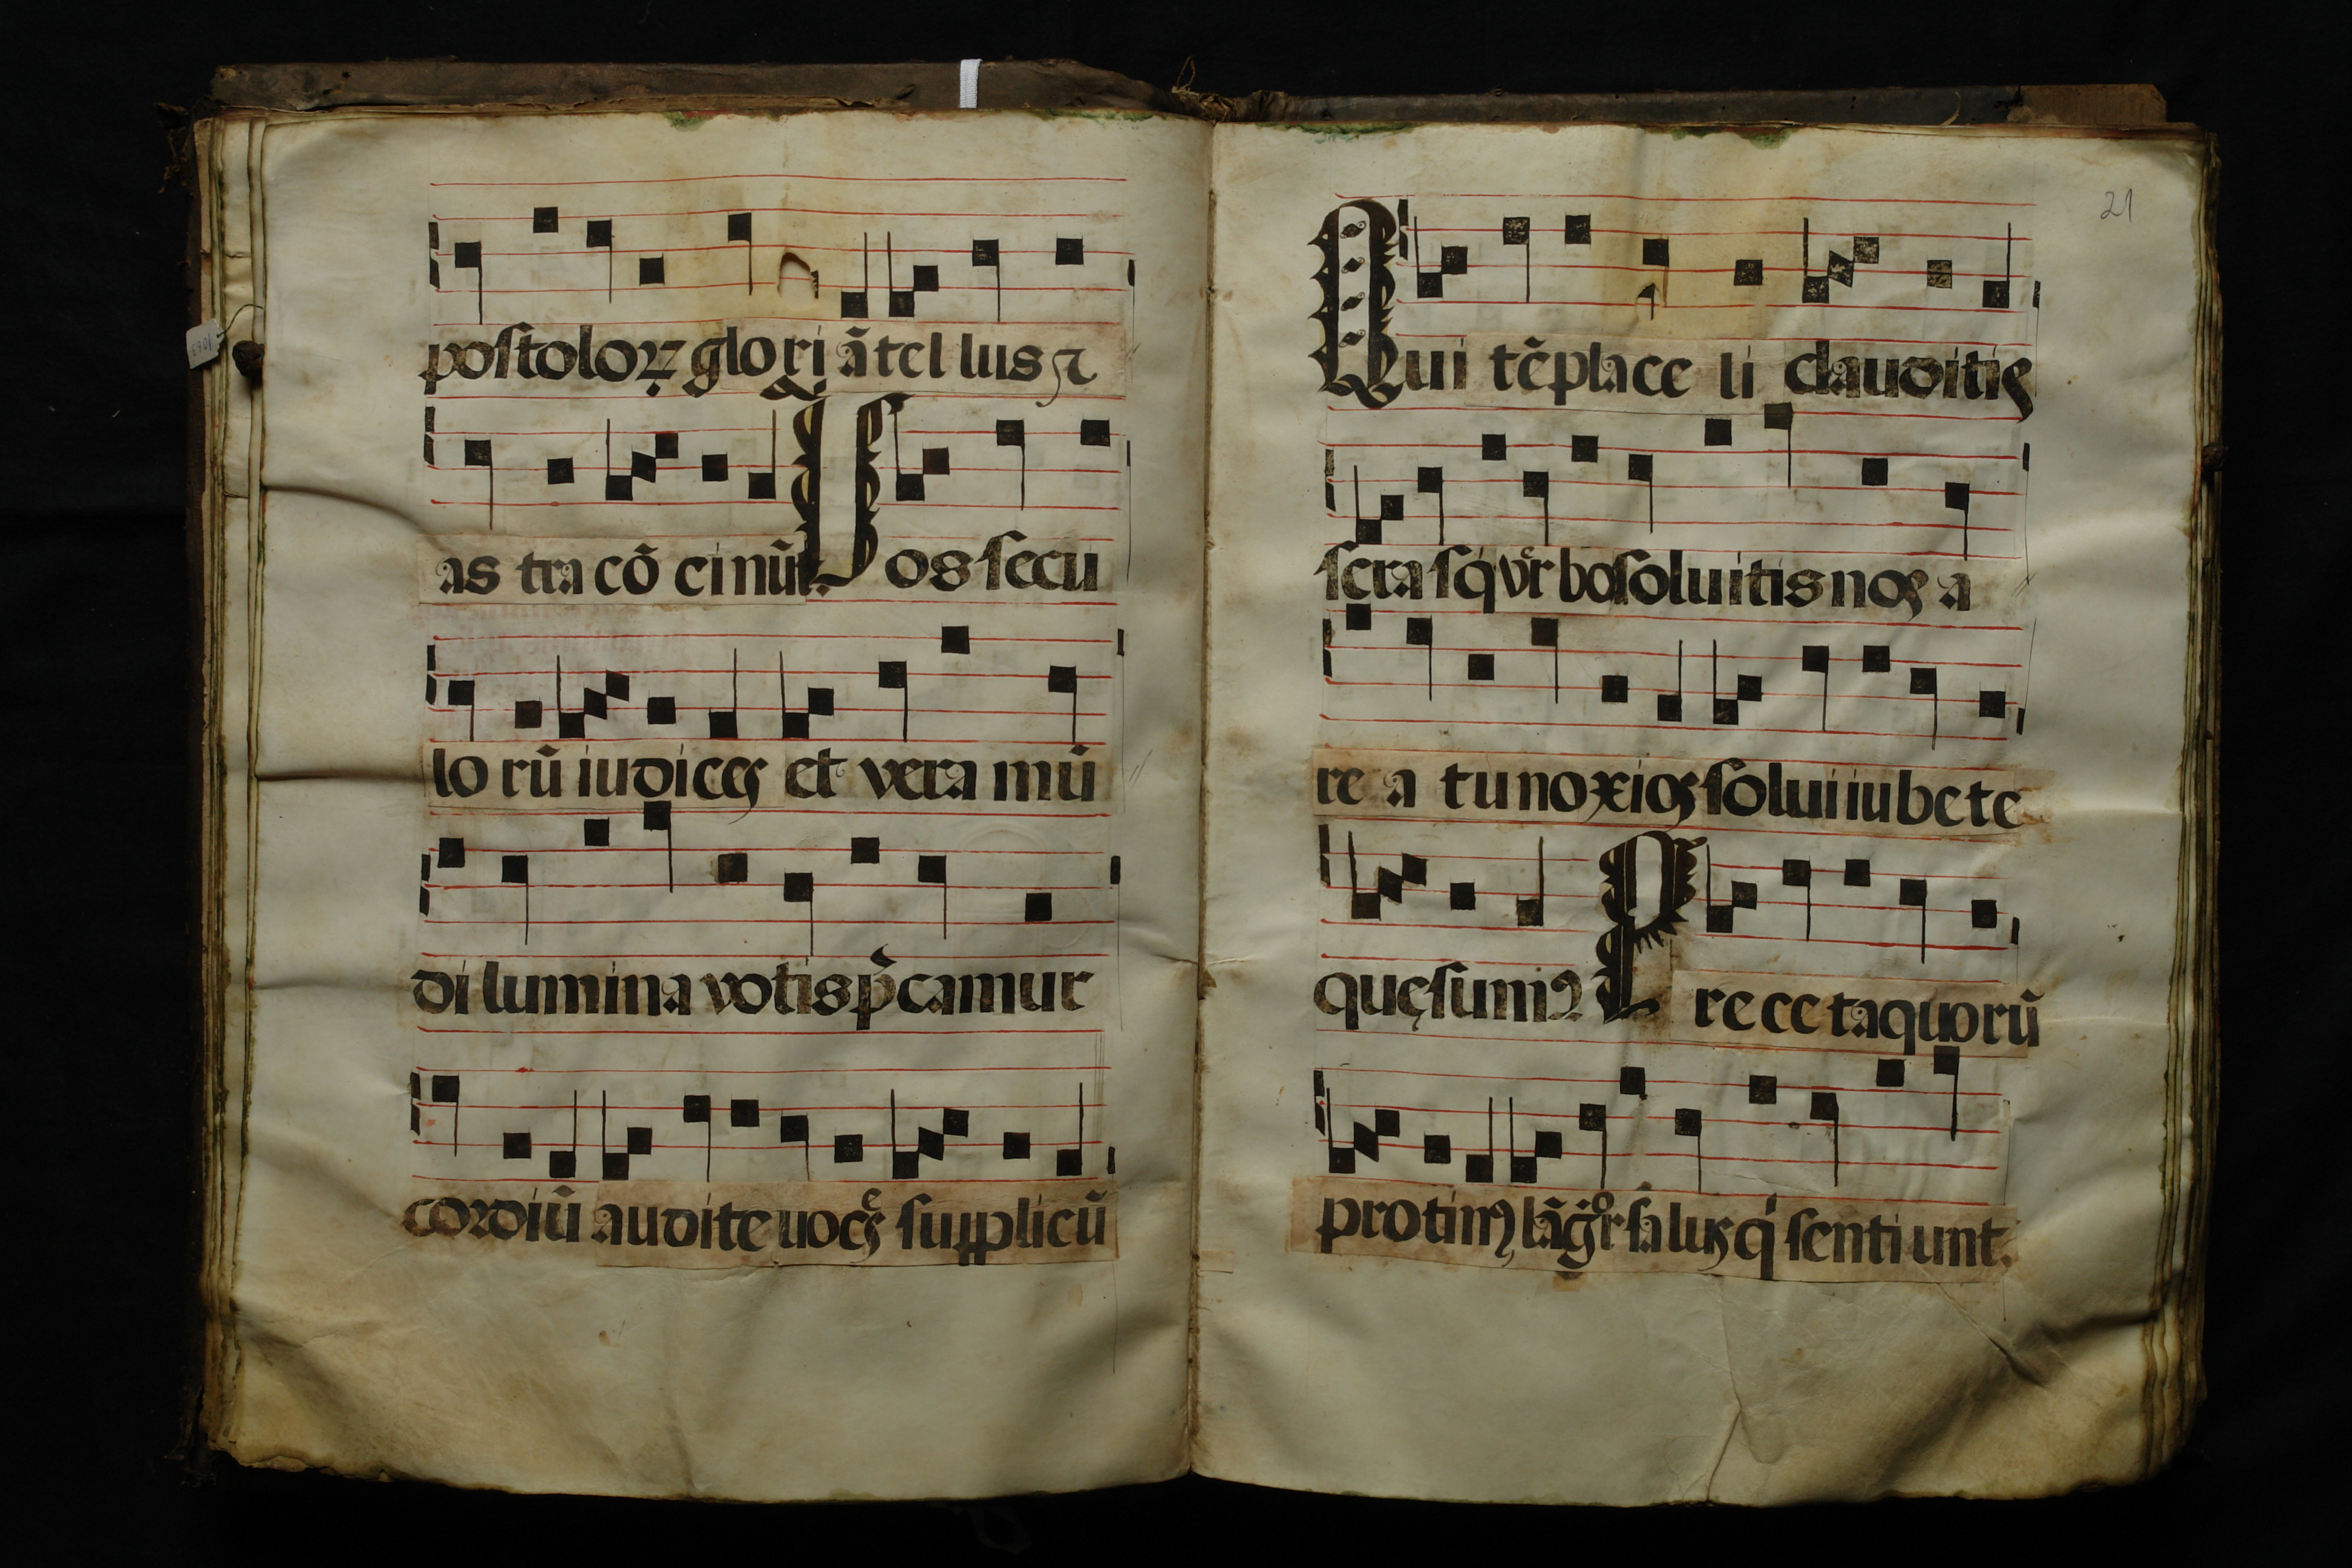 postoloꝝ glori ã tel lus ⁊
as tra cõ ci nũt. Vos secu
lo rũ iudices et vera mũ
di lumina votis p̃camur
cordiũ audite uoces supplicũ
21
Qui tẽpla ce li clauditis
scra sq̃ vr̃bo soluitis nos a
re a tu noxios solui iubete
quęsumꝰ Pre ce ta quorũ
protinꝰ lãgr̃ salus q̃ senti unt.